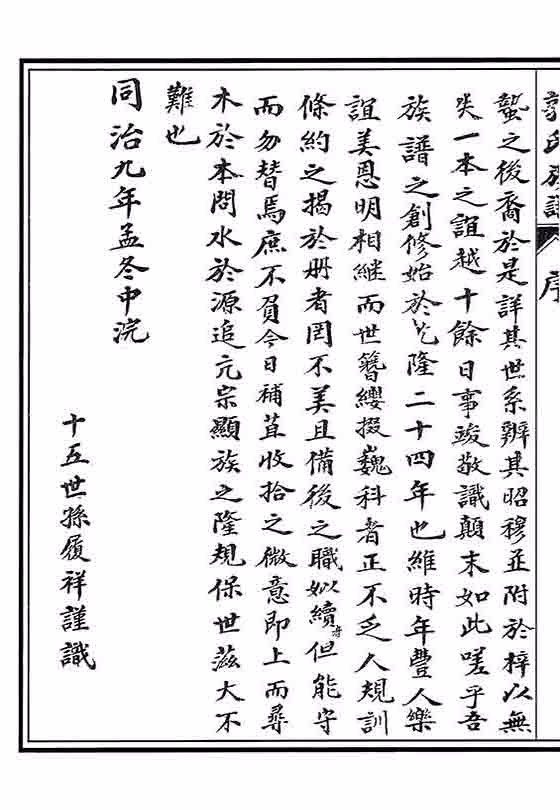 郭氏族譜 序
蟄之後裔於是詳其世系辨其昭穆並附於梓以無
失一本之誼越十餘日事竣敬識顛末如此嗟乎吾
族譜之創修始於乾隆二十四年也維時年豐人樂
誼美恩明相繼而世簪纓掇巍科者正不乏人規訓
條約之揭於册者罔不美且備後之職姒續者但能守
而勿替焉庶不負今日補苴收拾之微意即上而尋
木於本問水於源追元宗顯族之隆規保世滋大不
難也
同治九年孟冬中浣
十五世孫履祥謹識